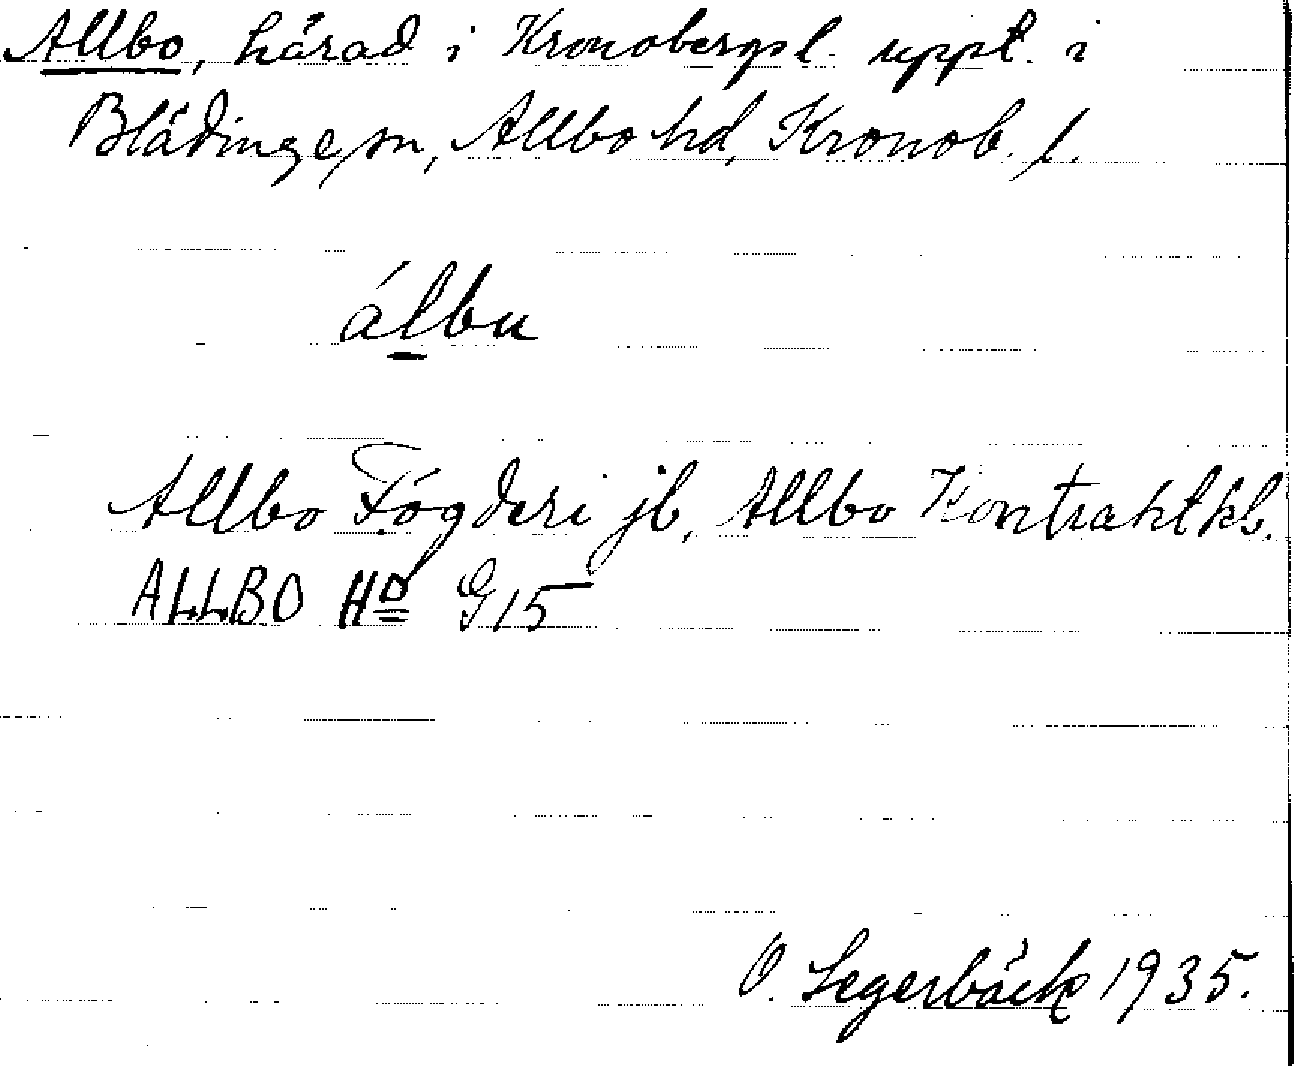 Allbo, härad i Kronobergsl. uppt. i
Blädinge sn, Allbo hd, Kronob. l.
álbu
Allbo Fögderi jb, Allbo Kontrakt kb.
ALLBO HD G15
O. Segerbäck 1935.